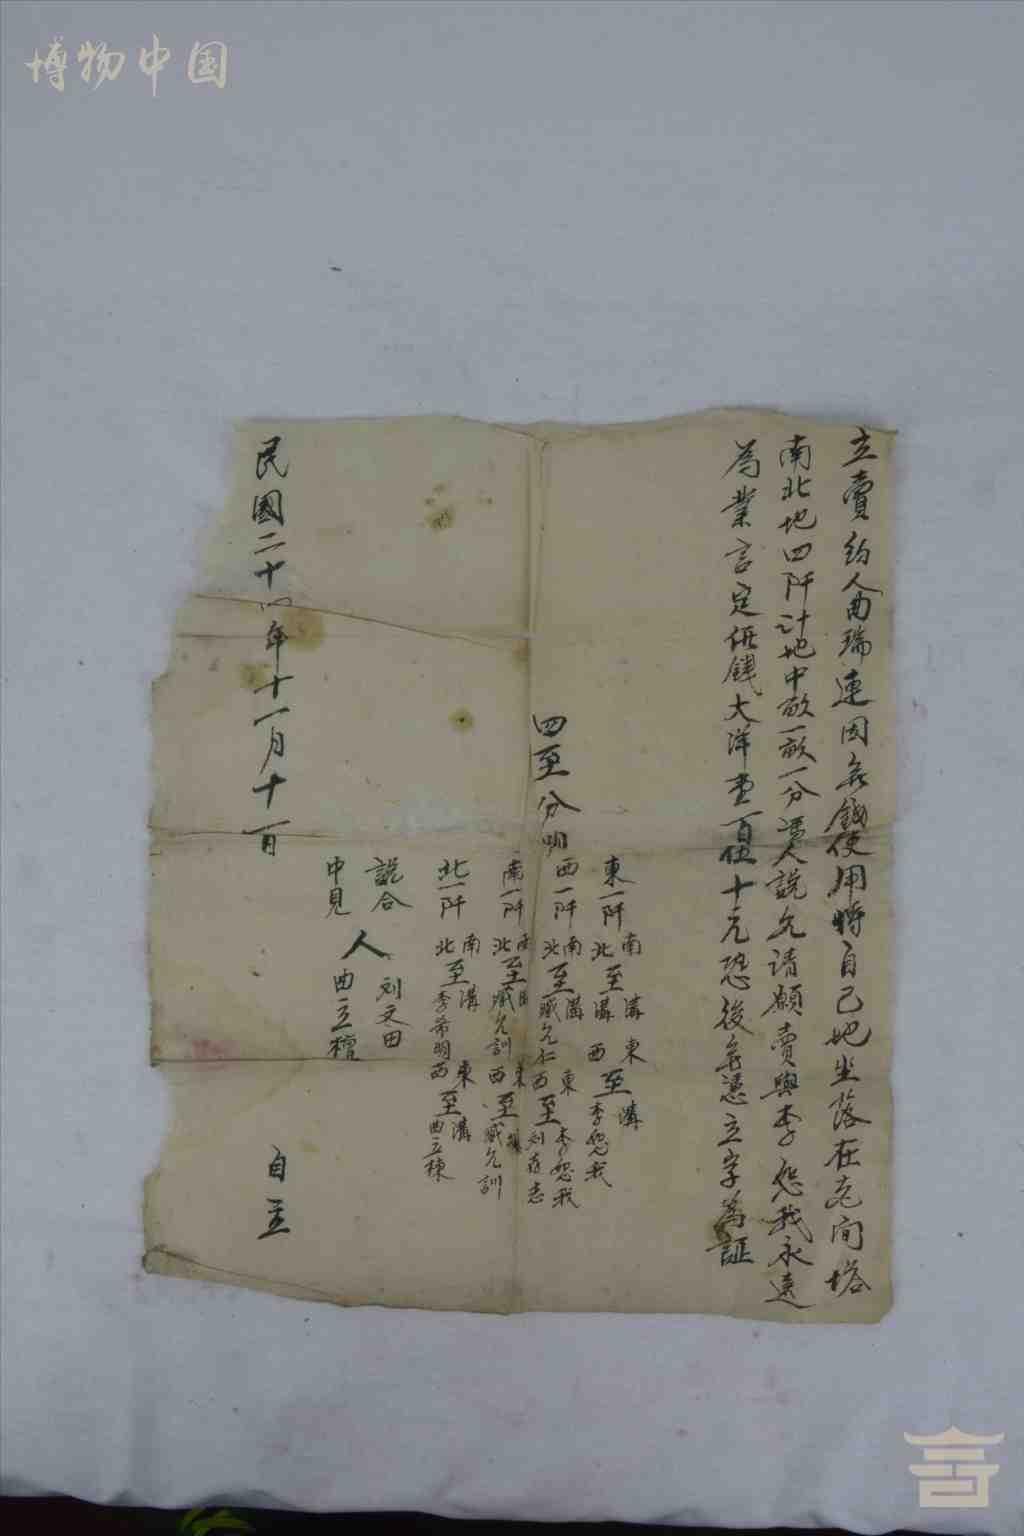 博物中国
立賣約人曲瑞連因無錢使用將自己地坐落在克间塔
南北地四阡計地中畝一畝一分憑人說允請願賣與李恕我永遠
為業言定価錢大洋壹百伍十元恐後無憑立字為証
四至分明
東一阡 南北至溝溝 東西至溝李恕我
西一阡 南北至溝臧允仁 東西至李恕我刘存志
南一阡 北至臧允訓 西至臧允訓
北一阡 南北至溝李希明 東西至溝曲立棟
說合中見人 刘文田 曲立檀
民國二十四年十一月十一日 自立